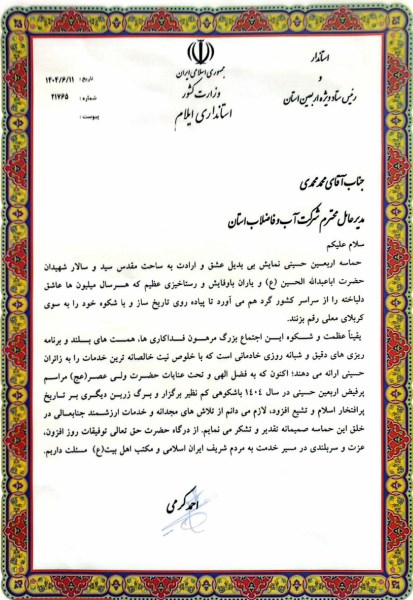 استاندار
و
رئیس ستاد ویژه اربعین استان
جمهوری اسلامی ایران
وزارت کشور
استانداری ایلام
تاریخ: ۱۴۰۴/۶/۱۱
شماره: ۲۱۷۶۵
پیوست:
جناب آقای محمد محمدی
مدیرعامل محترم شرکت آب و فاضلاب استان
سلام علیکم
حماسه اربعین حسینی نمایش بی بدیل عشق و ارادت به ساحت مقدس سید و سالار شهیدان
حضرت اباعبدالله الحسین (ع) و یاران باوفایش و رستاخیزی عظیم که هرسال میلیون ها عاشق
دلباخته را از سراسر کشور گرد هم می آورد تا پیاده روی تاریخ ساز و با شکوه خود را به سوی
کربلای معلی رقم بزنند.
یقیناً عظمت و شکوه این اجتماع بزرگ مرهون فداکاری ها، همت های بلند و برنامه
ریزی های دقیق و شبانه روزی خادمانی است که با خلوص نیت خالصانه ترین خدمات را به زائران
حسینی ارائه می دهند؛ اکنون که به فضل الهی و تحت عنایات حضرت ولی عصر(عج) مراسم
پرفیض اربعین حسینی در سال ۱۴۰۴ باشکوهی کم نظیر برگزار و برگ زرین دیگری بر تاریخ
پرافتخار اسلام و تشیع افزود، لازم می دانم از تلاش های مجدانه و خدمات ارزشمند جنابعالی در
خلق این حماسه صمیمانه تقدیر و تشکر می نمایم. از درگاه حضرت حق تعالی توفیقات روز افزون،
عزت و سربلندی در مسیر خدمت به مردم شریف ایران اسلامی و مکتب اهل بیت(ع) مسئلت داریم.
احمد کرمی